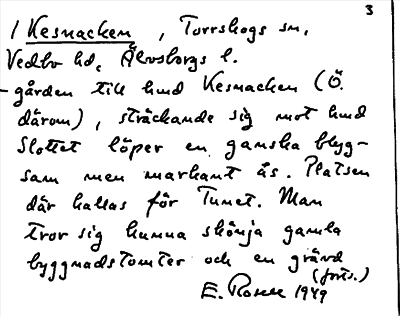 3
/ Kesnacken, Torrskogs sn,
Vedbo hd, Älvsborgs l.
- gården till hmd Kesnacken (Ö.
därom), sträckande sig mot hmd
Slottet löper en ganska blyg-
sam men markant ås. Platsen
där kallas för Tunet. Man
tror sig kunna skönja gamla
byggnadstomter och en grävd
(forts.)
E. Rosell 1949